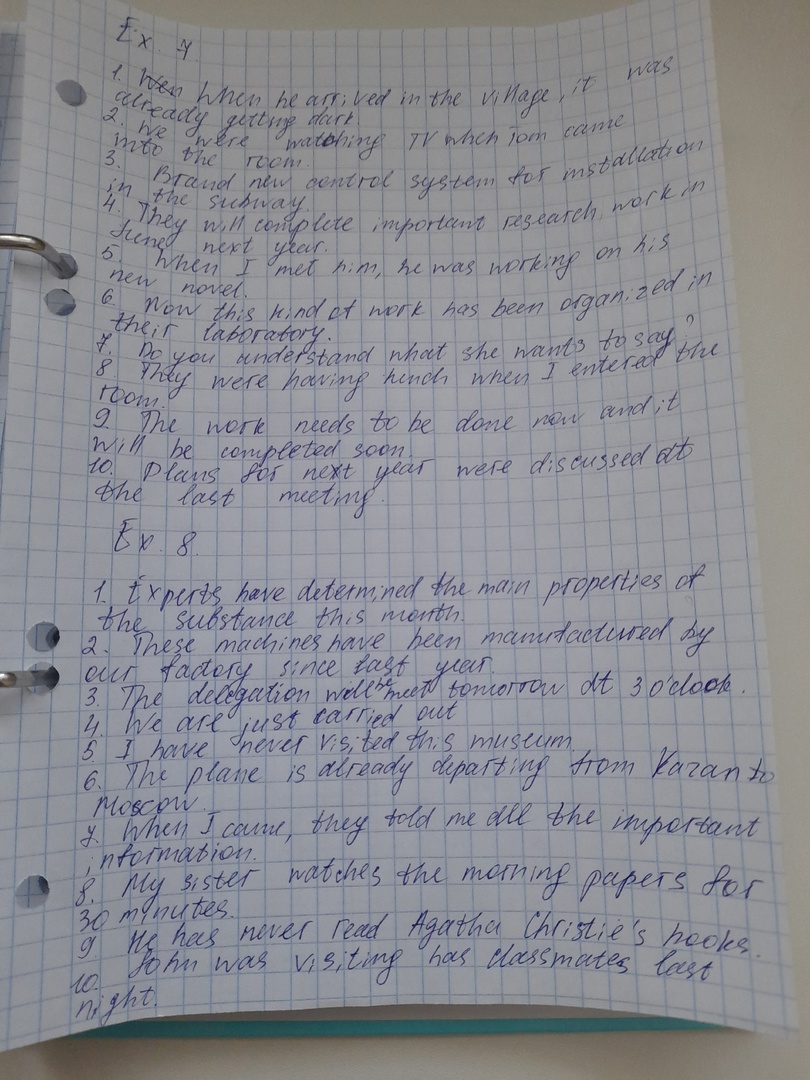 Ex. 7.
1. When he arrived in the village, it was
already getting dark.
2. We were watching TV when Tom came
into the room.
3. Brand new control system for installation
in the subway.
4. They will complete important research work in
June next year.
5. When I met him, he was working on his
new novel.
6. Now this kind of work has been organized in
their laboratory.
7. Do you understand what she wants to say?
8. They were having when I entered the
room.
9. The work needs to be done now and it
will be completed soon.
10. Plans for next year were discussed at
the last meeting.
Ex. 8.
1. Experts have determined the main properties of
the substance this month.
2. These machines have been manufactured by
our factory since last year.
3. The delegation will be meet tomorrow at 3 o'clock.
4. We are just carried out
5. I have never visited this museum
6. The plane is already departing from Kazan to
Moscow.
7. When I came, they told me all the important
information.
8. My sister watches the morning papers for
30 minutes.
9. He has never read Agatha Christie's books.
10. John was visiting has classmates last
night.